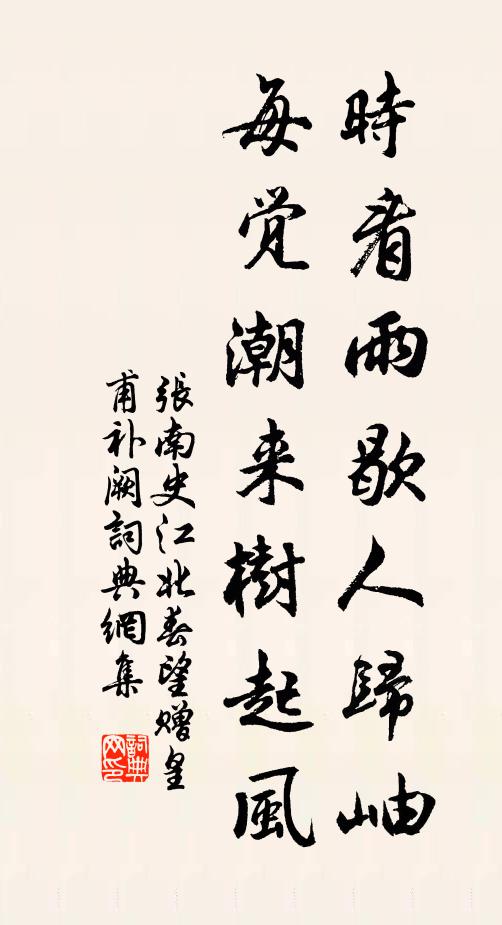 時看雨歇人歸岫
每觉潮来樹起風
張南史江北春望赠皇
甫补阙詞典網集
詞典
网印